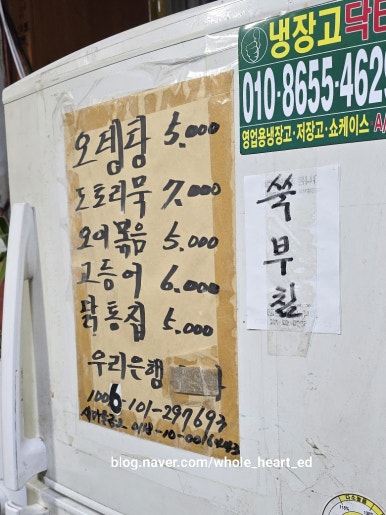 오뎅탕 5.000
도토리묵 7.000
오이볶음 5.000
고등어 6.000
닭똥집 5.000
우리은행
1006-101-297693
새마을금고
쑥부침
냉장고닥터
010·8655-4629
영업용냉장고·저장고·쇼케이스 A/
blog.naver.com/whole_heart_ed